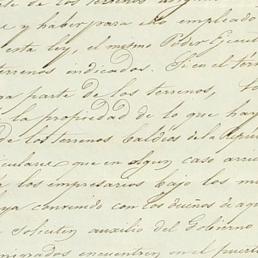 de los terrenos
y haber para ello empleado
esta ley, el mismo Poder Ejecut
terrenos indicados. Si en el tér
ra parte de los terrenos,
la propiedad de lo que hay
de los terrenos baldíos de la Repúb
ticulares que en algun caso
á los empresarios bajo los
ya convenido con los dueños de aq
soliciten auxilio del Gobierno
migrados encuentren en el puert